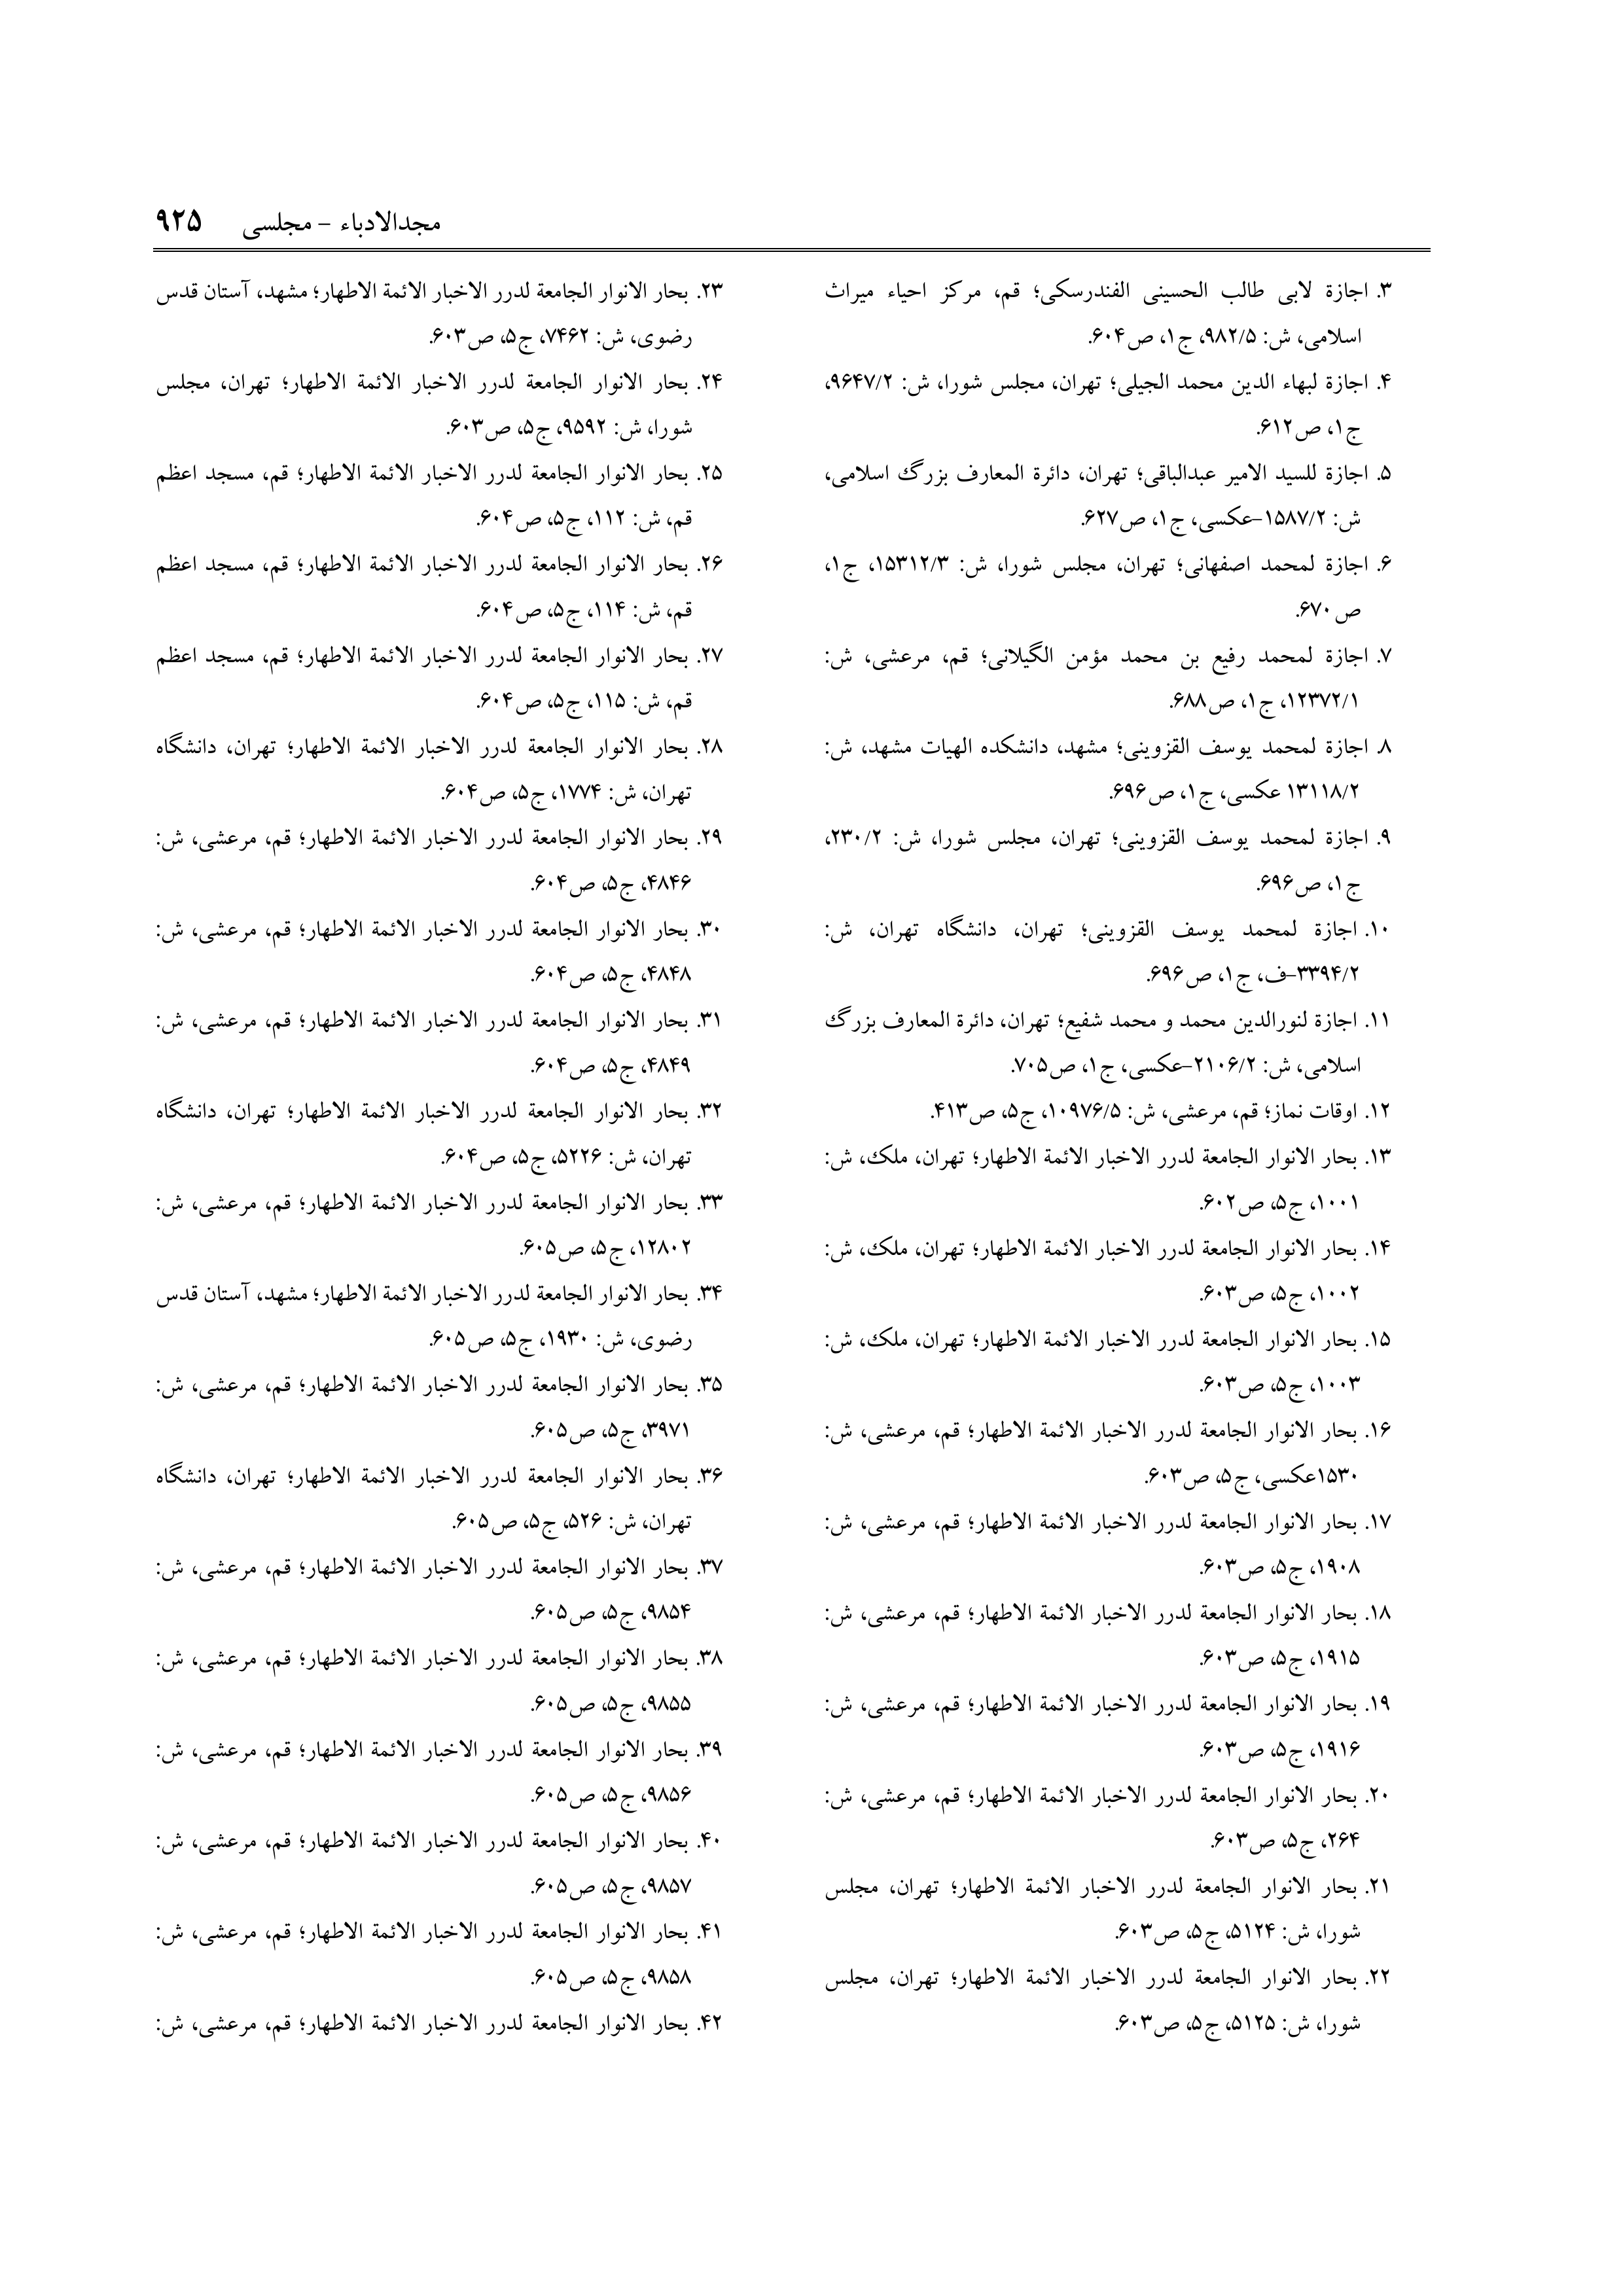 مجدالادباء – مجلسی ۹۲۵
۳. اجازة لابی طالب الحسینی الفندرسکی؛ قم، مرکز احیاء میراث
اسلامی، ش: ۹۸۲/۵، ج۱، ص۶۰۴.
۴. اجازة لبهاء الدین محمد الجیلی؛ تهران، مجلس شورا، ش: ۹۶۴۷/۲،
ج۱، ص۶۱۲.
۵. اجازة للسید الامیر عبدالباقی؛ تهران، دائرة المعارف بزرگ اسلامی،
ش: ۱۵۸۷/۲–عکسی، ج۱، ص۶۲۷.
۶. اجازة لمحمد اصفهانی؛ تهران، مجلس شورا، ش: ۱۵۳۱۲/۳، ج۱،
ص۶۷۰.
۷. اجازة لمحمد رفیع بن محمد مؤمن الگیلانی؛ قم، مرعشی، ش:
۱۲۳۷۲/۱، ج۱، ص۶۸۸.
۸. اجازة لمحمد یوسف القزوینی؛ مشهد، دانشکده الهیات مشهد، ش:
۱۳۱۱۸/۲ عکسی، ج۱، ص۶۹۶.
۹. اجازة لمحمد یوسف القزوینی؛ تهران، مجلس شورا، ش: ۲۳۰/۲،
ج۱، ص۶۹۶.
۱۰. اجازة لمحمد یوسف القزوینی؛ تهران، دانشگاه تهران، ش:
۳۳۹۴/۲–ف، ج۱، ص۶۹۶.
۱۱. اجازة لنورالدین محمد و محمد شفیع؛ تهران، دائرة المعارف بزرگ
اسلامی، ش: ۲۱۰۶/۲–عکسی، ج۱، ص۷۰۵.
۱۲. اوقات نماز؛ قم، مرعشی، ش: ۱۰۹۷۶/۵، ج۵، ص۴۱۳.
۱۳. بحار الانوار الجامعة لدرر الاخبار الائمة الاطهار؛ تهران، ملک، ش:
۱۰۰۱، ج۵، ص۶۰۲.
۱۴. بحار الانوار الجامعة لدرر الاخبار الائمة الاطهار؛ تهران، ملک، ش:
۱۰۰۲، ج۵، ص۶۰۳.
۱۵. بحار الانوار الجامعة لدرر الاخبار الائمة الاطهار؛ تهران، ملک، ش:
۱۰۰۳، ج۵، ص۶۰۳.
۱۶. بحار الانوار الجامعة لدرر الاخبار الائمة الاطهار؛ قم، مرعشی، ش:
۱۵۳۰عکسی، ج۵، ص۶۰۳.
۱۷. بحار الانوار الجامعة لدرر الاخبار الائمة الاطهار؛ قم، مرعشی، ش:
۱۹۰۸، ج۵، ص۶۰۳.
۱۸. بحار الانوار الجامعة لدرر الاخبار الائمة الاطهار؛ قم، مرعشی، ش:
۱۹۱۵، ج۵، ص۶۰۳.
۱۹. بحار الانوار الجامعة لدرر الاخبار الائمة الاطهار؛ قم، مرعشی، ش:
۱۹۱۶، ج۵، ص۶۰۳.
۲۰. بحار الانوار الجامعة لدرر الاخبار الائمة الاطهار؛ قم، مرعشی، ش:
۲۶۴، ج۵، ص۶۰۳.
۲۱. بحار الانوار الجامعة لدرر الاخبار الائمة الاطهار؛ تهران، مجلس
شورا، ش: ۵۱۲۴، ج۵، ص۶۰۳.
۲۲. بحار الانوار الجامعة لدرر الاخبار الائمة الاطهار؛ تهران، مجلس
شورا، ش: ۵۱۲۵، ج۵، ص۶۰۳.
۲۳. بحار الانوار الجامعة لدرر الاخبار الائمة الاطهار؛ مشهد، آستان قدس
رضوی، ش: ۷۴۶۲، ج۵، ص۶۰۳.
۲۴. بحار الانوار الجامعة لدرر الاخبار الائمة الاطهار؛ تهران، مجلس
شورا، ش: ۹۵۹۲، ج۵، ص۶۰۳.
۲۵. بحار الانوار الجامعة لدرر الاخبار الائمة الاطهار؛ قم، مسجد اعظم
قم، ش: ۱۱۲، ج۵، ص۶۰۴.
۲۶. بحار الانوار الجامعة لدرر الاخبار الائمة الاطهار؛ قم، مسجد اعظم
قم، ش: ۱۱۴، ج۵، ص۶۰۴.
۲۷. بحار الانوار الجامعة لدرر الاخبار الائمة الاطهار؛ قم، مسجد اعظم
قم، ش: ۱۱۵، ج۵، ص۶۰۴.
۲۸. بحار الانوار الجامعة لدرر الاخبار الائمة الاطهار؛ تهران، دانشگاه
تهران، ش: ۱۷۷۴، ج۵، ص۶۰۴.
۲۹. بحار الانوار الجامعة لدرر الاخبار الائمة الاطهار؛ قم، مرعشی، ش:
۴۸۴۶، ج۵، ص۶۰۴.
۳۰. بحار الانوار الجامعة لدرر الاخبار الائمة الاطهار؛ قم، مرعشی، ش:
۴۸۴۸، ج۵، ص۶۰۴.
۳۱. بحار الانوار الجامعة لدرر الاخبار الائمة الاطهار؛ قم، مرعشی، ش:
۴۸۴۹، ج۵، ص۶۰۴.
۳۲. بحار الانوار الجامعة لدرر الاخبار الائمة الاطهار؛ تهران، دانشگاه
تهران، ش: ۵۲۲۶، ج۵، ص۶۰۴.
۳۳. بحار الانوار الجامعة لدرر الاخبار الائمة الاطهار؛ قم، مرعشی، ش:
۱۲۸۰۲، ج۵، ص۶۰۵.
۳۴. بحار الانوار الجامعة لدرر الاخبار الائمة الاطهار؛ مشهد، آستان قدس
رضوی، ش: ۱۹۳۰، ج۵، ص۶۰۵.
۳۵. بحار الانوار الجامعة لدرر الاخبار الائمة الاطهار؛ قم، مرعشی، ش:
۳۹۷۱، ج۵، ص۶۰۵.
۳۶. بحار الانوار الجامعة لدرر الاخبار الائمة الاطهار؛ تهران، دانشگاه
تهران، ش: ۵۲۶، ج۵، ص۶۰۵.
۳۷. بحار الانوار الجامعة لدرر الاخبار الائمة الاطهار؛ قم، مرعشی، ش:
۹۸۵۴، ج۵، ص۶۰۵.
۳۸. بحار الانوار الجامعة لدرر الاخبار الائمة الاطهار؛ قم، مرعشی، ش:
۹۸۵۵، ج۵، ص۶۰۵.
۳۹. بحار الانوار الجامعة لدرر الاخبار الائمة الاطهار؛ قم، مرعشی، ش:
۹۸۵۶، ج۵، ص۶۰۵.
۴۰. بحار الانوار الجامعة لدرر الاخبار الائمة الاطهار؛ قم، مرعشی، ش:
۹۸۵۷، ج۵، ص۶۰۵.
۴۱. بحار الانوار الجامعة لدرر الاخبار الائمة الاطهار؛ قم، مرعشی، ش:
۹۸۵۸، ج۵، ص۶۰۵.
۴۲. بحار الانوار الجامعة لدرر الاخبار الائمة الاطهار؛ قم، مرعشی، ش: